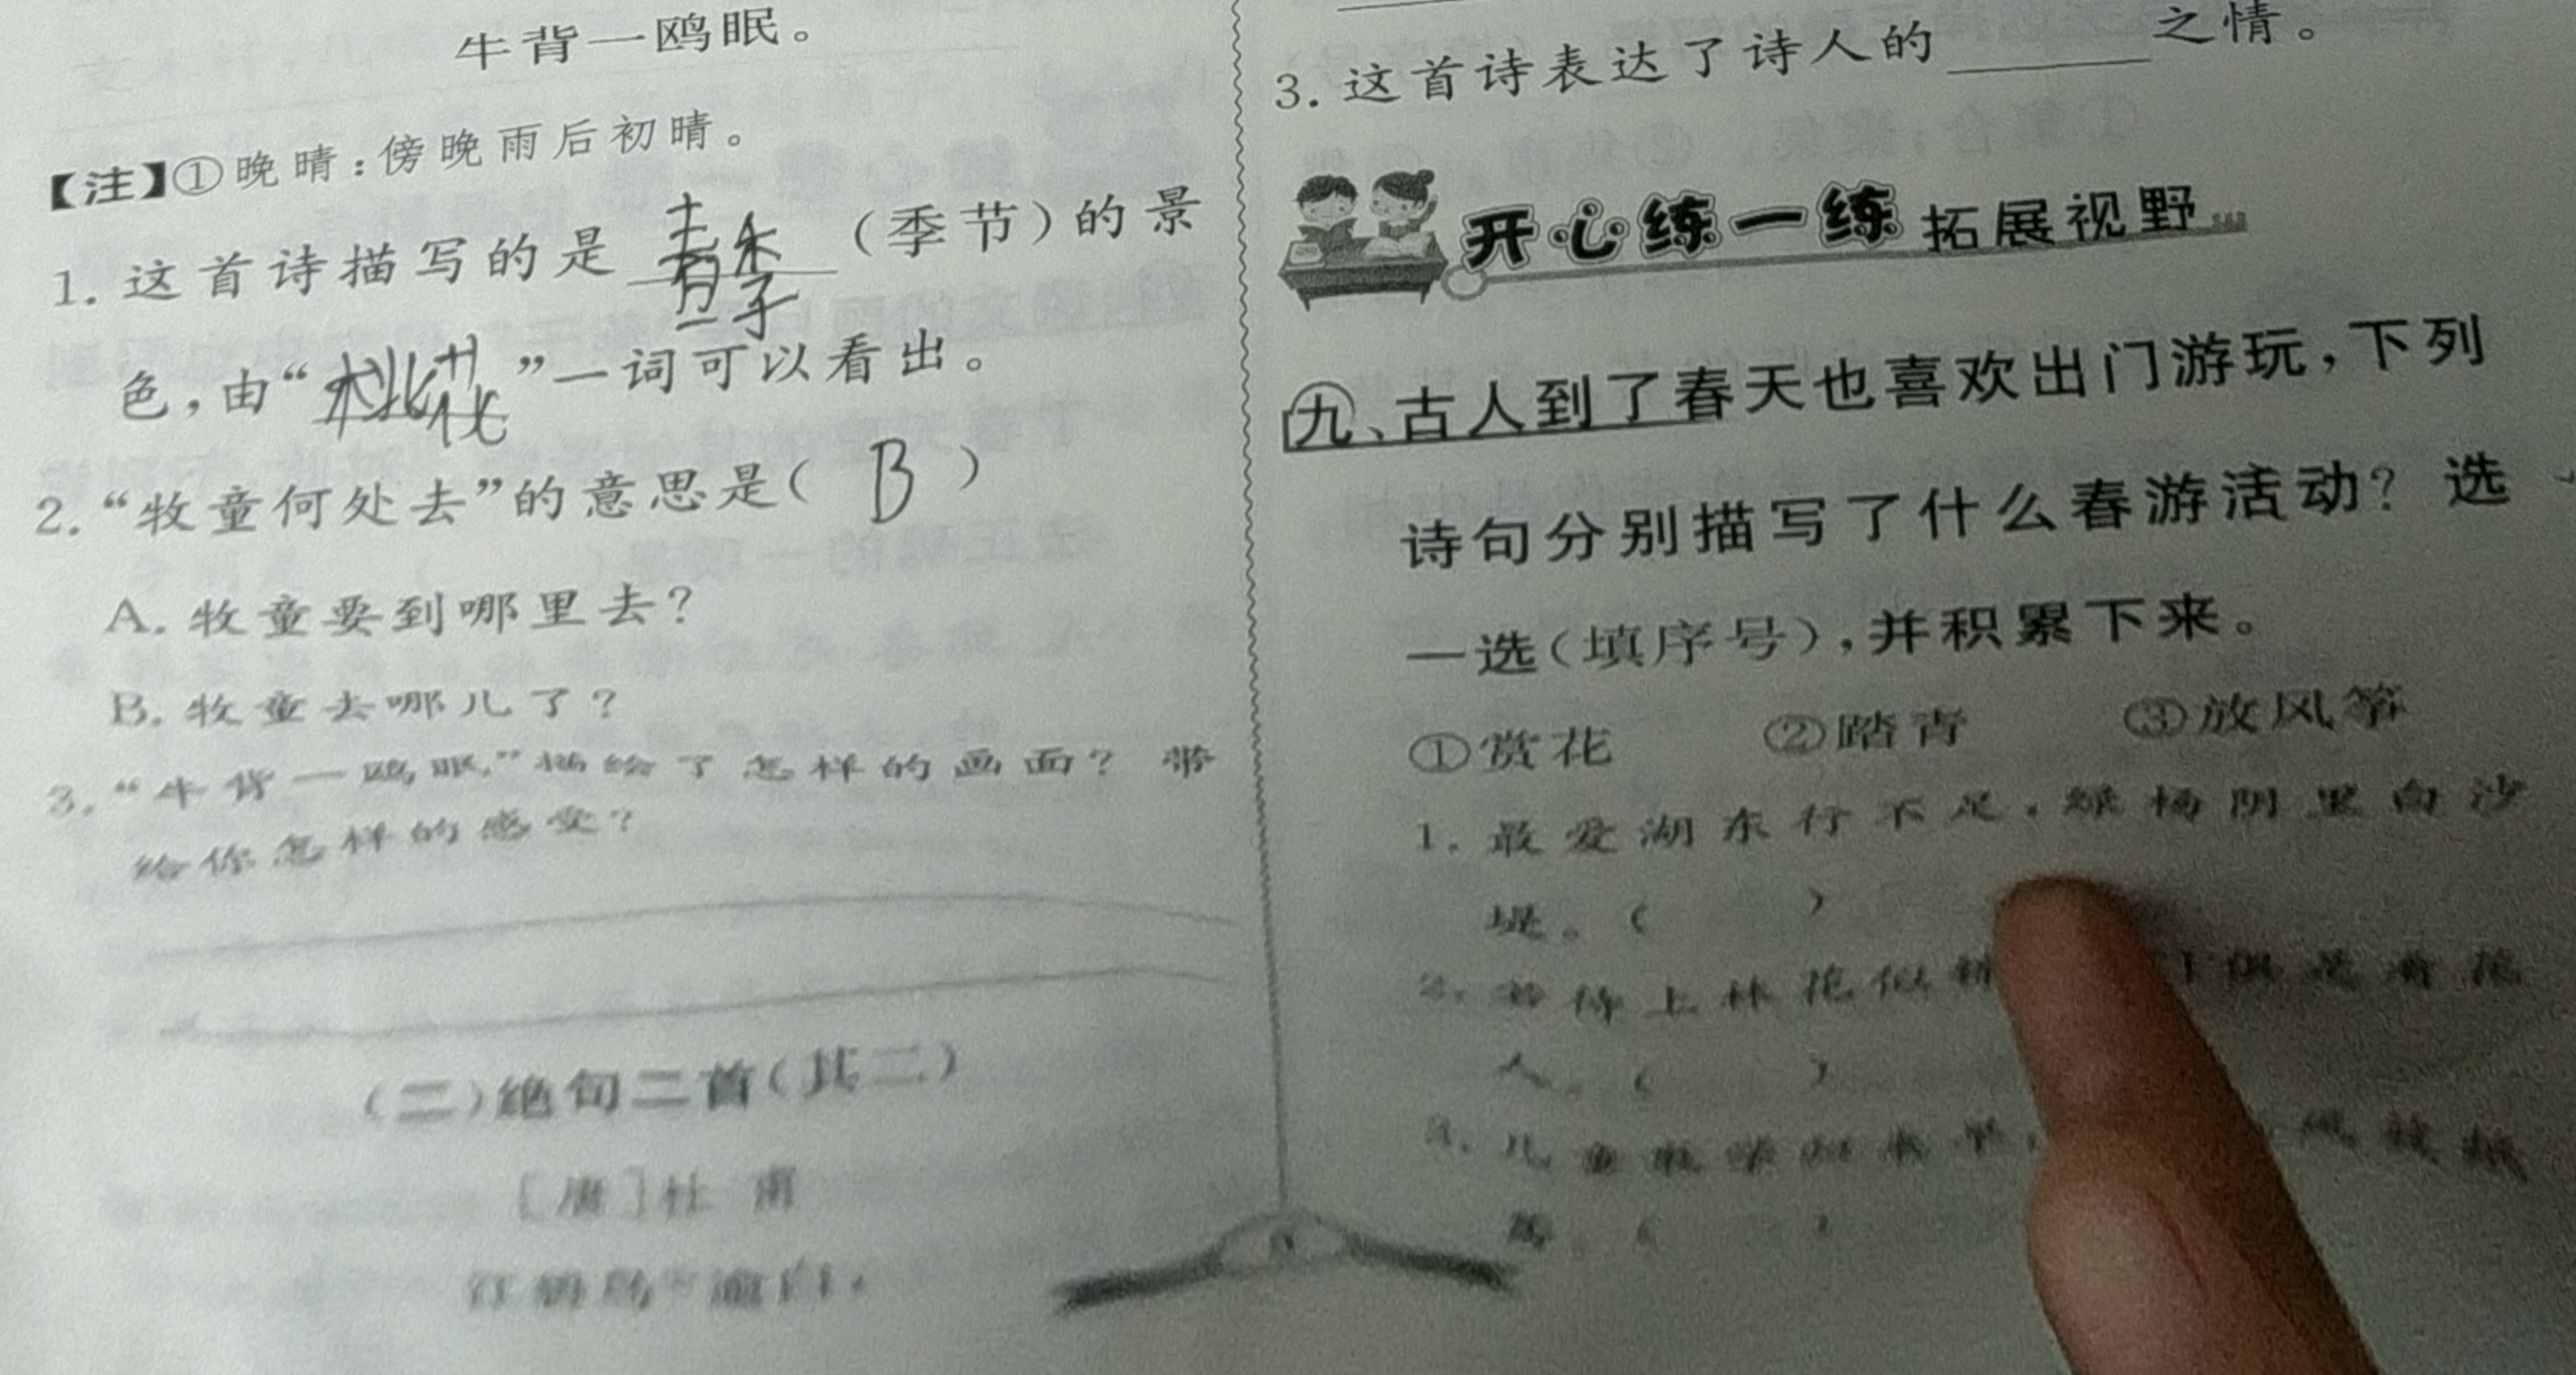 牛背一鸥眠。
【注】①晚晴:傍晚雨后初晴。
1. 这首诗描写的是 春季 (季节)的景
色,由“桃花”一词可以看出。
2. “牧童何处去”的意思是( B )
A. 牧童要到哪里去?
B. 牧童去哪儿了?
3. “牛背一鸥眠”描绘了怎样的画面? 带
给你怎样的感受?
(二)绝句二首(其二)
[唐]杜 甫
江碧鸟逾白,
3. 这首诗表达了诗人的______之情。
开心练一练 拓展视野
九、古人到了春天也喜欢出门游玩,下列
诗句分别描写了什么春游活动? 选
一选(填序号),并积累下来。
①赏花 ②踏青 ③放风筝
1. 最爱湖东行不足,绿杨阴里白沙
堤。( )
2. 若待上林花似 俱是看花
人。( )
3. 儿童散学归来早, 风放纸
鸢。( )